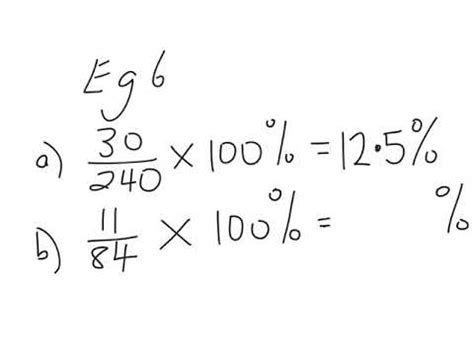 Eg 6
a) 30/240 × 100% = 12.5%
b) 11/84 × 100% = %